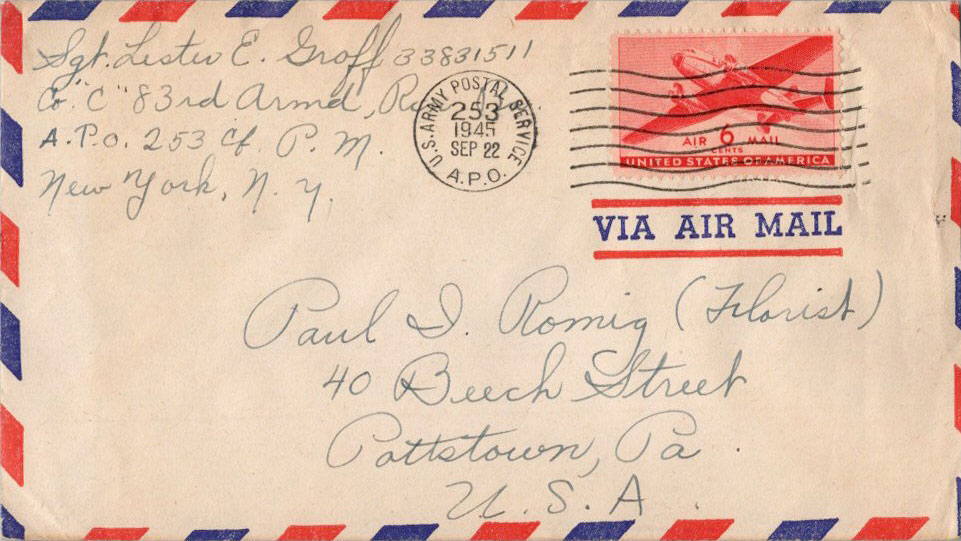 Sgt. Lester E. Groff 33831511
Co. "C" 83rd Armd, Rcn Bn.
A.P.O. 253 c/o P.M.
New York, N.Y.
U.S. ARMY POSTAL SERVICE
253
1945
SEP 22
A.P.O.
AIR 6 MAIL
CENTS
UNITED STATES OF AMERICA
VIA AIR MAIL
Paul I. Romig (Florist)
40 Beech Street
Pottstown, Pa.
U.S.A.